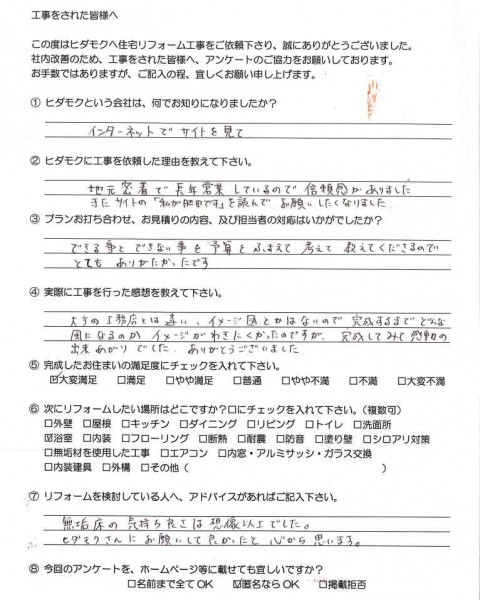 工事をされた皆様へ
この度はヒダモクへ住宅リフォーム工事をご依頼下さり、誠にありがとうございました。
社内改善のため、工事をされた皆様へ、アンケートのご協力をお願いしております。
お手数ではありますが、ご記入の程、宜しくお願い申し上げます。
① ヒダモクという会社は、何でお知りになりましたか？
インターネットで サイトを見て
② ヒダモクに工事を依頼した理由を教えて下さい。
地元密着で長年営業しているので信頼感がありました
またサイトの「私が肥田です」を読んで お願いしたくなりました
③ プランお打ち合わせ、お見積りの内容、及び担当者の対応はいかがでしたか？
できる事とできない事を予算をふまえて考えて教えてくださるので
とても ありがたかったです
④ 実際に工事を行った感想を教えて下さい。
大手の工務店とは違い、イメージ図とかはないので完成するまでどんな
風になるのかイメージがわきにくかったのですが、完成してみて感動の
出来あがりでした。ありがとうございました
⑤ 完成したお住まいの満足度にチェックを入れて下さい。
☑大変満足 □満足 □やや満足 □普通 □やや不満 □不満 □大変不満
⑥ 次にリフォームしたい場所はどこですか？□にチェックを入れて下さい。（複数可）
□外壁 □屋根 □キッチン □ダイニング □リビング □トイレ □洗面所
☑浴室 □内装 □フローリング □断熱 □耐震 □防音 □塗り壁 □シロアリ対策
□無垢材を使用した工事 □エアコン □内窓・アルミサッシ・ガラス交換
□内装建具 □外構 □その他（ ）
⑦ リフォームを検討している人へ、アドバイスがあればご記入下さい。
無垢床の気持ち良さは想像以上でした。
ヒダモクさんにお願いして良かったと心から思います。
⑧ 今回のアンケートを、ホームページ等に載せても宜しいですか？
□名前まで全てOK ☑匿名ならOK □掲載拒否